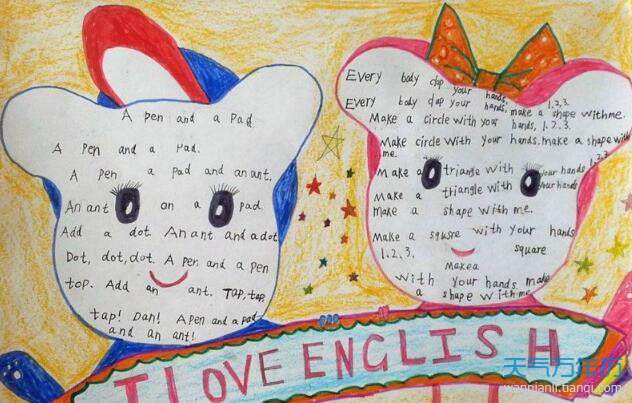 A pen and a pad.
A pen and a pad.
A pen a pad and an ant.
An ant on a pad.
Add a dot. An ant and a dot
Dot, dot, dot. A pen and a pen
top. Add an ant. Tap, tap,
tap! Dan! A pen and a pad
and an ant!
Every body clap your hands.
Every body clap your hands, 1.2.3.
make a shape with me.
Make a circle with your hands, 1.2.3.
Make circle with your hands. make a shape with
me. 1.2.3
Make a triangle with your hands
Make a triangle with your hands
Make a shape with me.
Make a square with your hands
1.2.3. square
Make a
with your hands make
a shape with me
I LOVE ENGLISH
天气万年历
wannianli.tianqi.com